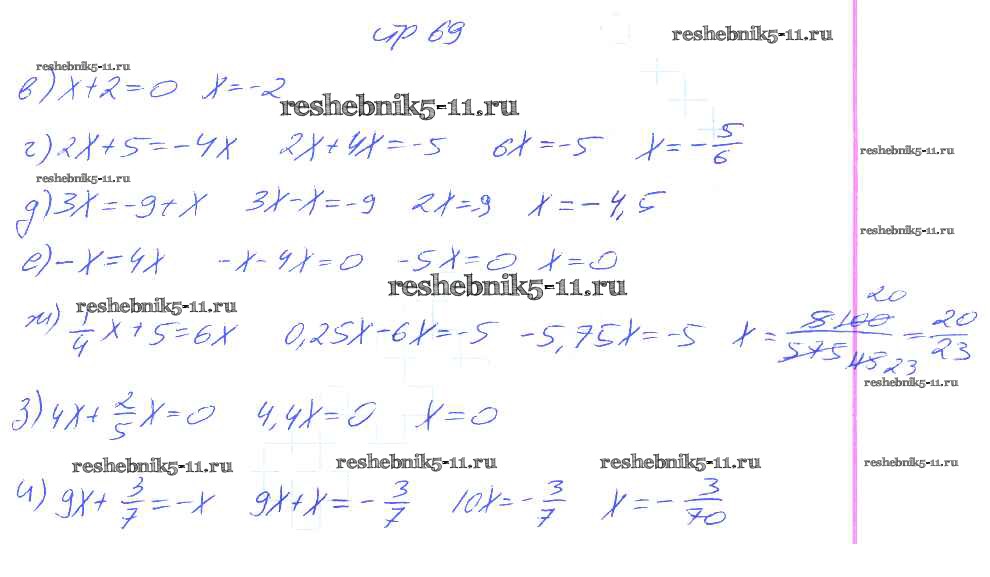 стр 69 reshebnik5-11.ru
reshebnik5-11.ru
в) x+2=0 x=-2
reshebnik5-11.ru
г) 2x+5=-4x 2x+4x=-5 6x=-5 x=-5/6 reshebnik5-11.ru
reshebnik5-11.ru
д) 3x=-9+x 3x-x=-9 2x=-9 x=-4,5
reshebnik5-11.ru
е) -x=4x -x-4x=0 -5x=0 x=0
reshebnik5-11.ru
reshebnik5-11.ru
ж) 1/4 x+5=6x 0,25x-6x=-5 -5,75x=-5 x= 5 100 20 / 575 23 = 20/23
reshebnik5-11.ru
з) 4x+2/5 x=0 4,4x=0 x=0
reshebnik5-11.ru reshebnik5-11.ru reshebnik5-11.ru reshebnik5-11.ru
и) 9x+3/7=-x 9x+x=-3/7 10x=-3/7 x=-3/70